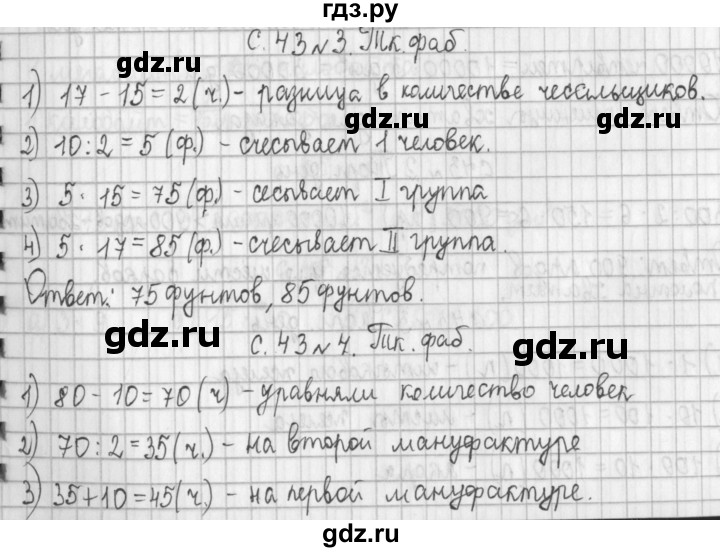 гдз.ру
С. 43 № 3. Тк. фаб.
gdz.ru gdz.ru
1) 17 - 15 = 2 (ч.) - разница в количестве чесальщиков.
gdz.ru gdz.ru
2) 10 : 2 = 5 (ф.) - счесывает 1 человек.
3) 5 · 15 = 75 (ф.) - сесывает I группа
gdz.ru
4) 5 · 17 = 85 (ф.) - счесывает II группа.
gdz.ru
Ответ: 75 фунтов, 85 фунтов.
gdz.ru gdz.ru
С. 43 № 4. Тк. фаб.
1) 80 - 10 = 70 (ч) - уравняли количество человек
gdz.ru
2) 70 : 2 = 35 (ч.) - на второй мануфактуре
gdz.ru gdz.ru
3) 35 + 10 = 45 (ч.) - на первой мануфактуре.
gdz.ru